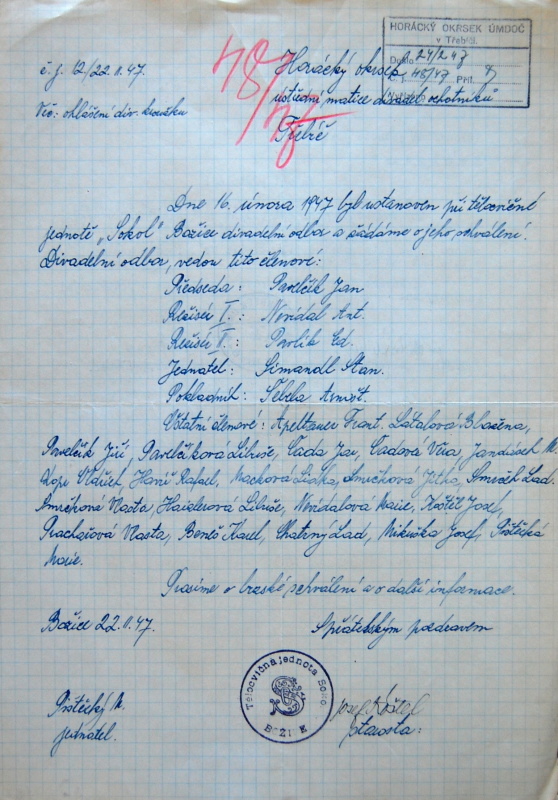 HORÁCKÝ OKRSEK ÚMDOČ
v Třebíči.
Došlo 24/2 47
Č. j. 48/47 Příl.
48/47
č.j. 12/22.II.47.
Horácký okrsek
Věc: ohlášení div. kroužku
ústřední matice divadel. ochotníků
Třebíč
Dne 16. února 1947 byl ustanoven při tělocvičné
jednotě „Sokol" Božice divadelní odbor a žádáme o jeho schválení.
Divadelní odbor, vedou tito členové:
Předseda: Pavelčík Jan
Režisér I.: Nevídal Ant.
Režisér II.: Pavlík Ed.
Jednatel: Simandl Stan.
Pokladník: Šebela Arnošt.
Ostatní členové: Apeltauer Frant. Látalová Blažena,
Pavelčík Jiří, Pavelčíková Libuše, Čada Jar, Čadová Věra, Jandásek M.
Oldřich, Haniš Rafael, Macková Liška, Smrčková Jitka, Smrček Lad.
Smrčková Vlasta, Haiderová Libuše, Nevídalová Marie, Košťál Josef,
Prachařová Vlasta, Beneš Karel, Chatrný Lad, Mikuška Josef, Pištěcká
Marie.
Prosíme o brzské schválení a o další informace.
Božice 22.II.47.
S přátelským pozdravem
Tělocvičná jednota Sokol
BOŽICE
Pištěcký M.
jednatel.
Josef Košťál
starosta: